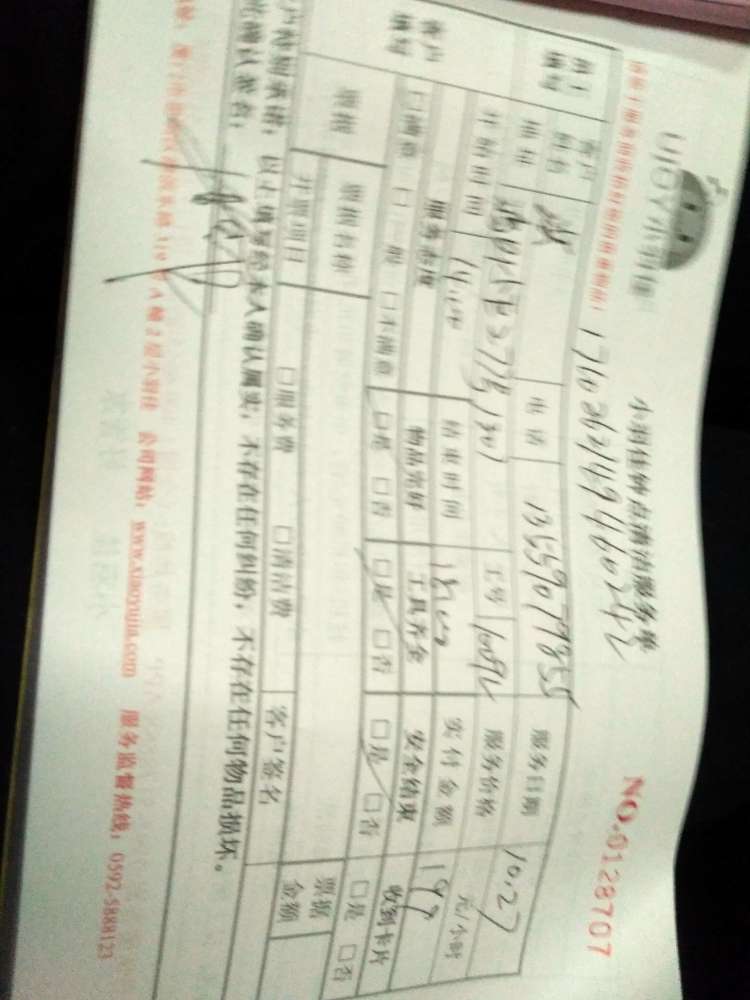 UJOY小羽佳
小羽佳钟点清洁服务单
NO.0128707
176026214946242
员工填写 客户姓名 电话 13559079855 服务日期 10.27
地址 工号 服务价格 元/小时
开始时间 14:00 结束时间 18:00 实付金额 199
客户填写 服务态度 物品完好 工具齐全 安全结束 收到卡片
□满意 □一般 □不满意 □是 □否 □是 □否 □是 □否 □是 □否
票据 票据名称 票据金额
开票项目 □服务费 □清洁费 客户签名
以上填写经本人确认属实，不存在任何纠纷，不存在任何物品损坏。
公司网站：www.xiaoyujia.com 服务监督热线：0592-5888123